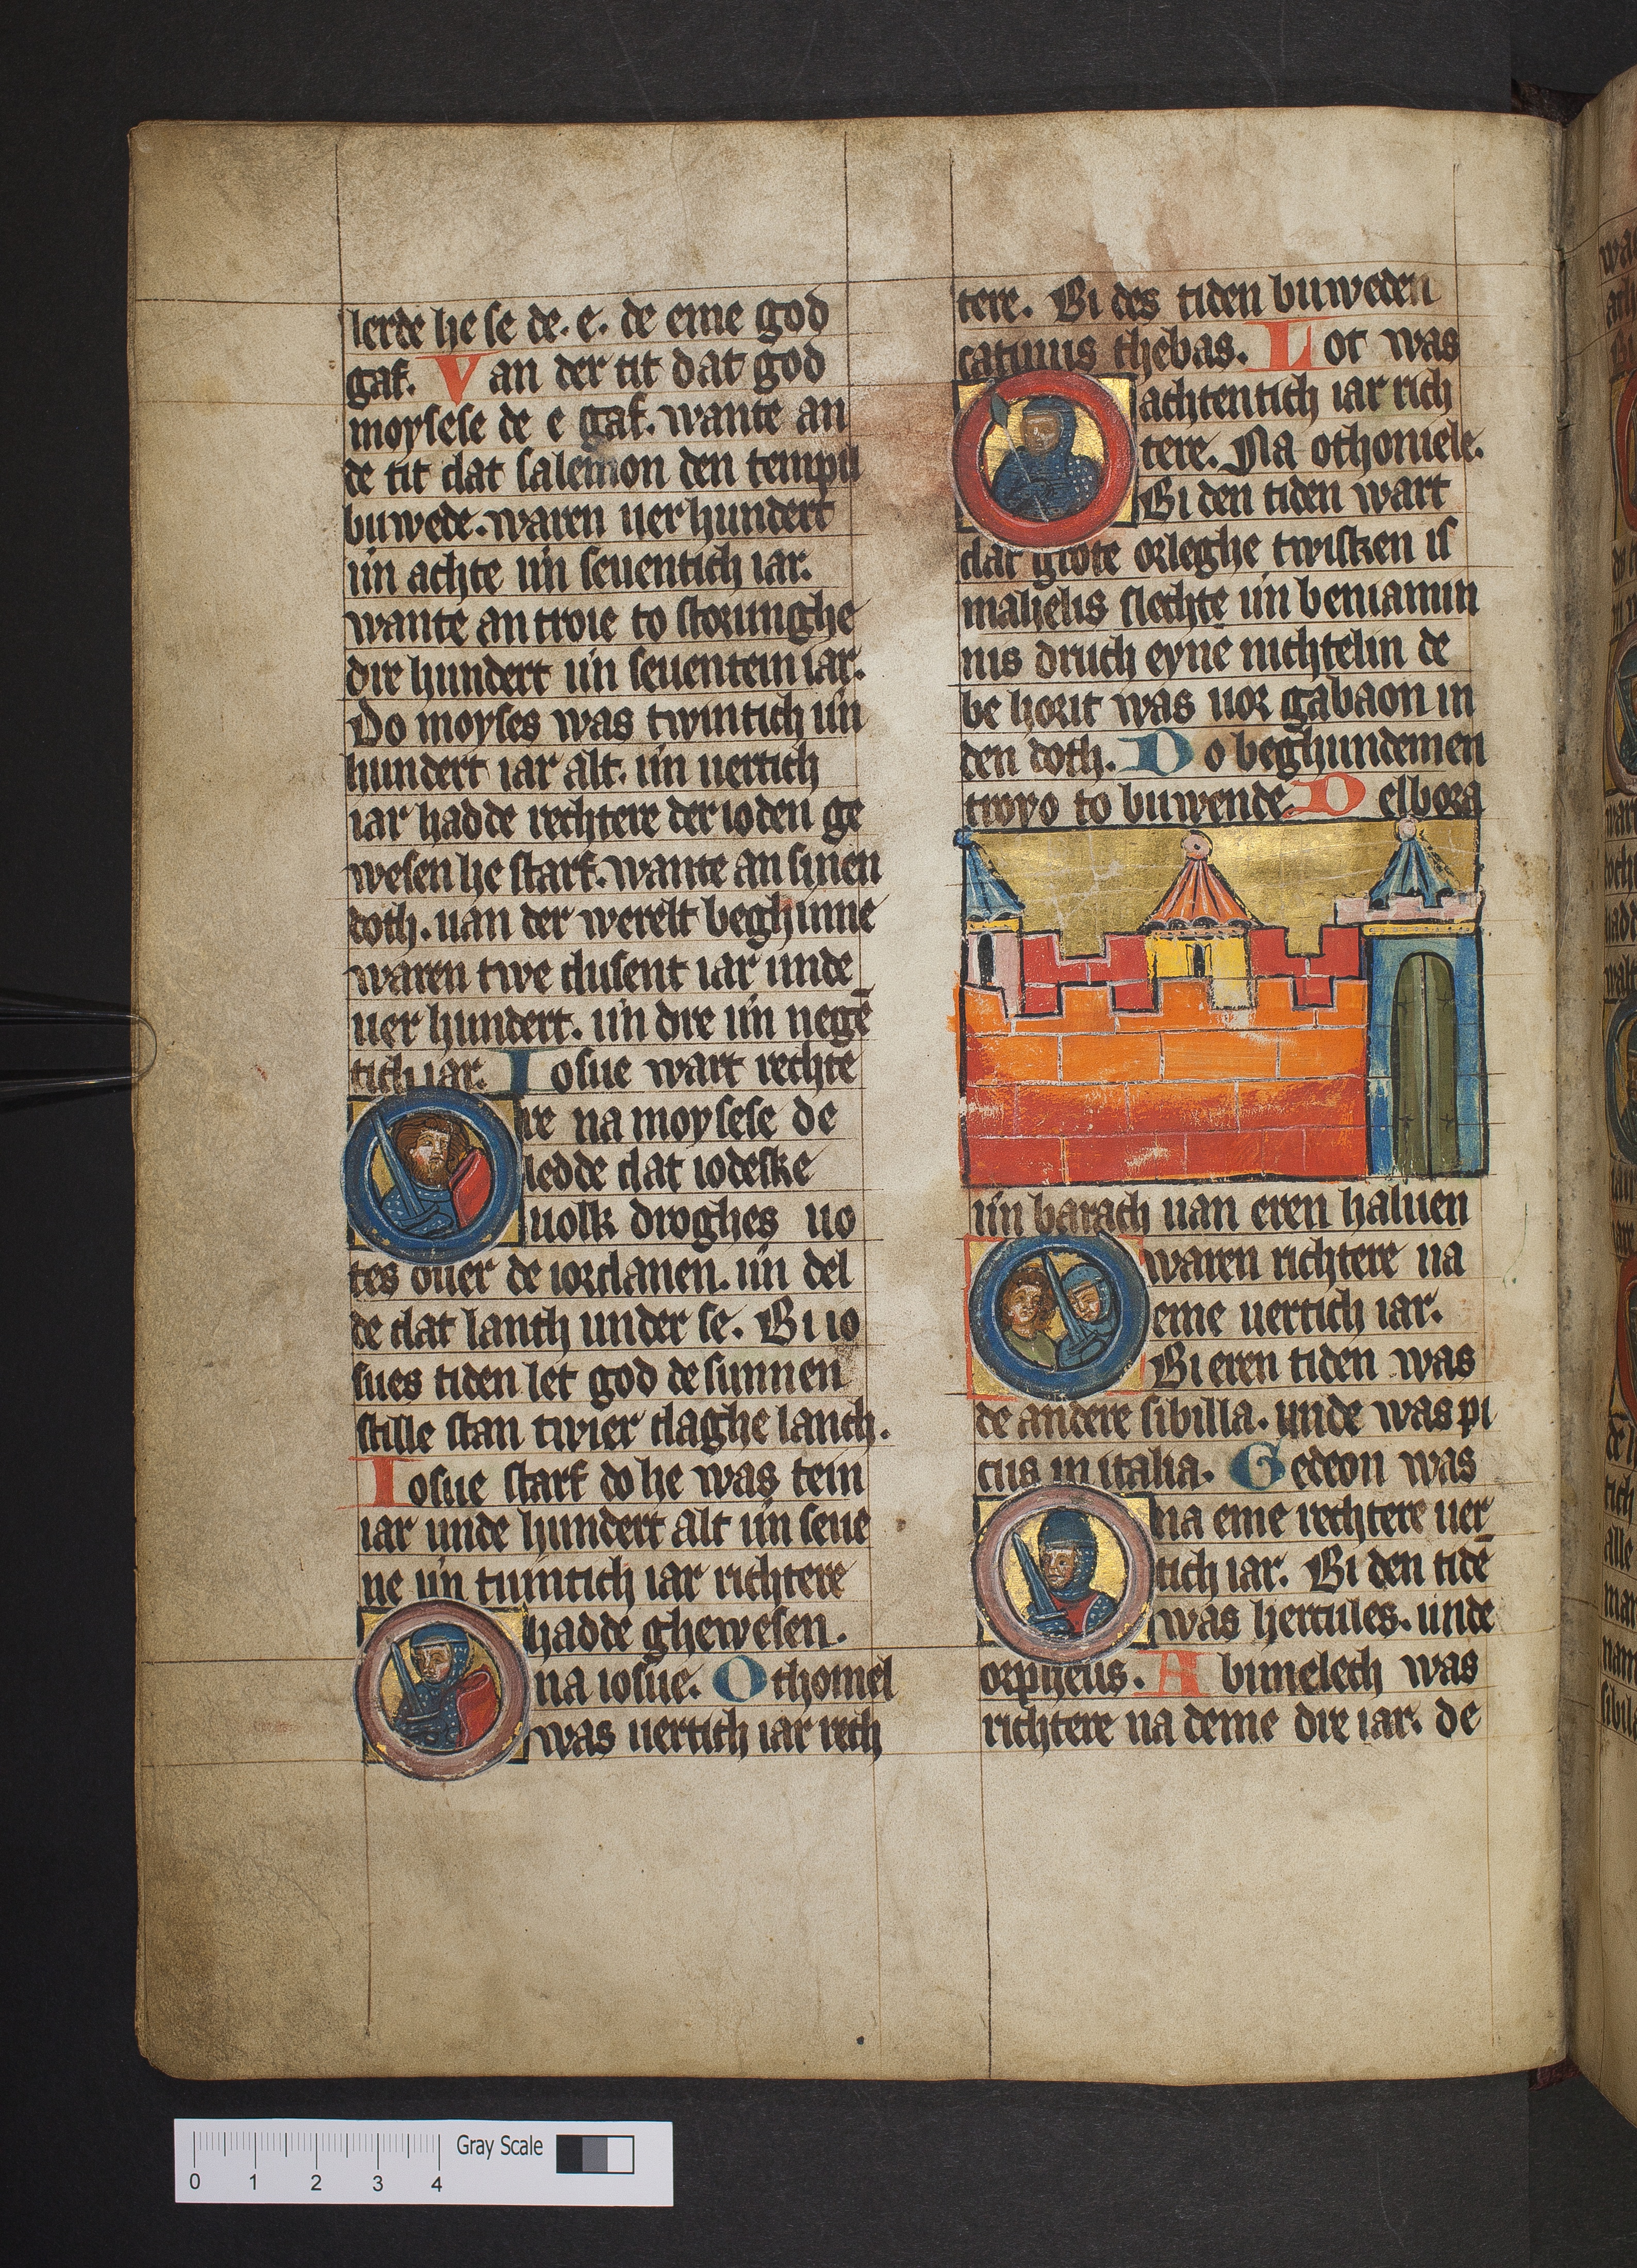 lerde he se de. e. de eme god
gaf. Van der tit dat god
moysese de e gaf. wante an
de tit dat salemon den tempil
buwede. waren uer hundert
un̄ achte un̄ seuentich iar.
wante an troie to storunghe
dre hundert un̄ seuentein iar.
Do moyses was twintich un̄
hundert iar alt. un̄ uertich
iar hadde rechtere der ioden ge
wesen he starf. wante an sinen
doth. uan der werelt beghinne
waren twe dusent iar unde
uer hundert. un̄ dre un̄ negē
tich iar. Iosue wart rechte
re na moysese de
ledde dat iodeske
uolk droghes uo
tes ouer de iordanen. un̄ del
de dat lanth under se. Bi io
sues tiden let god de sunnen
stille stan twier daghe lanch.
Iosue starf do he was tein
iar unde hundert alt un̄ seue
ne un̄ tuintich iar richtere
hadde ghewesen.
na iosue. Othoniel
was uertich iar rech
tere. Bi des tiden buweden
catinus thebas. Lot was
achtentich iar rich
tere. Na othoniele.
Bi den tiden wart
dat grote orleghe twisken is
rahelis slechte un̄ beniamin
nis druch eyne nichtelin de
be horit was uor gabaon in
den doth. Do beghundemen
troyo to buwende. Delbora
un̄ barach uan eren haluen
waren richtere na
eme uertich iar.
Bi eren tiden was
de andere sibilla. unde was pi
cus in italia. Gedeon was
na eme rechtere uer
tich iar. Bi den tidē
was hercules. unde
orpheus. Abimelech was
richtere na deme dre iar. de
Gray Scale
0 1 2 3 4